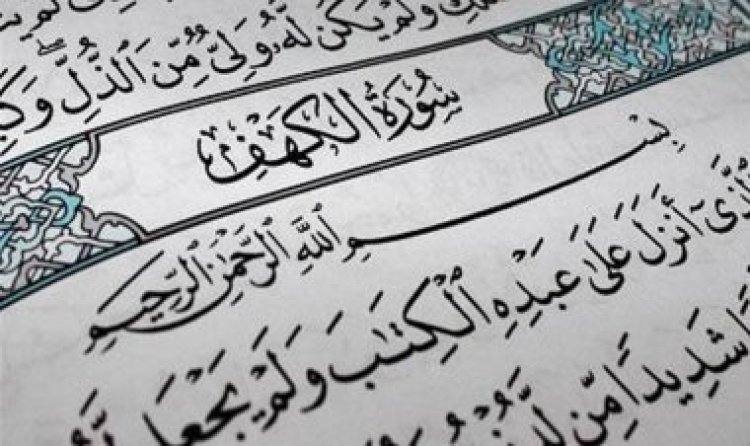 ولم يكن له ولي من الذل
سورة الكهف
بسم الله الرحمن الرحيم
أنزل على عبده الكتاب ولم يجعل
شديدا من